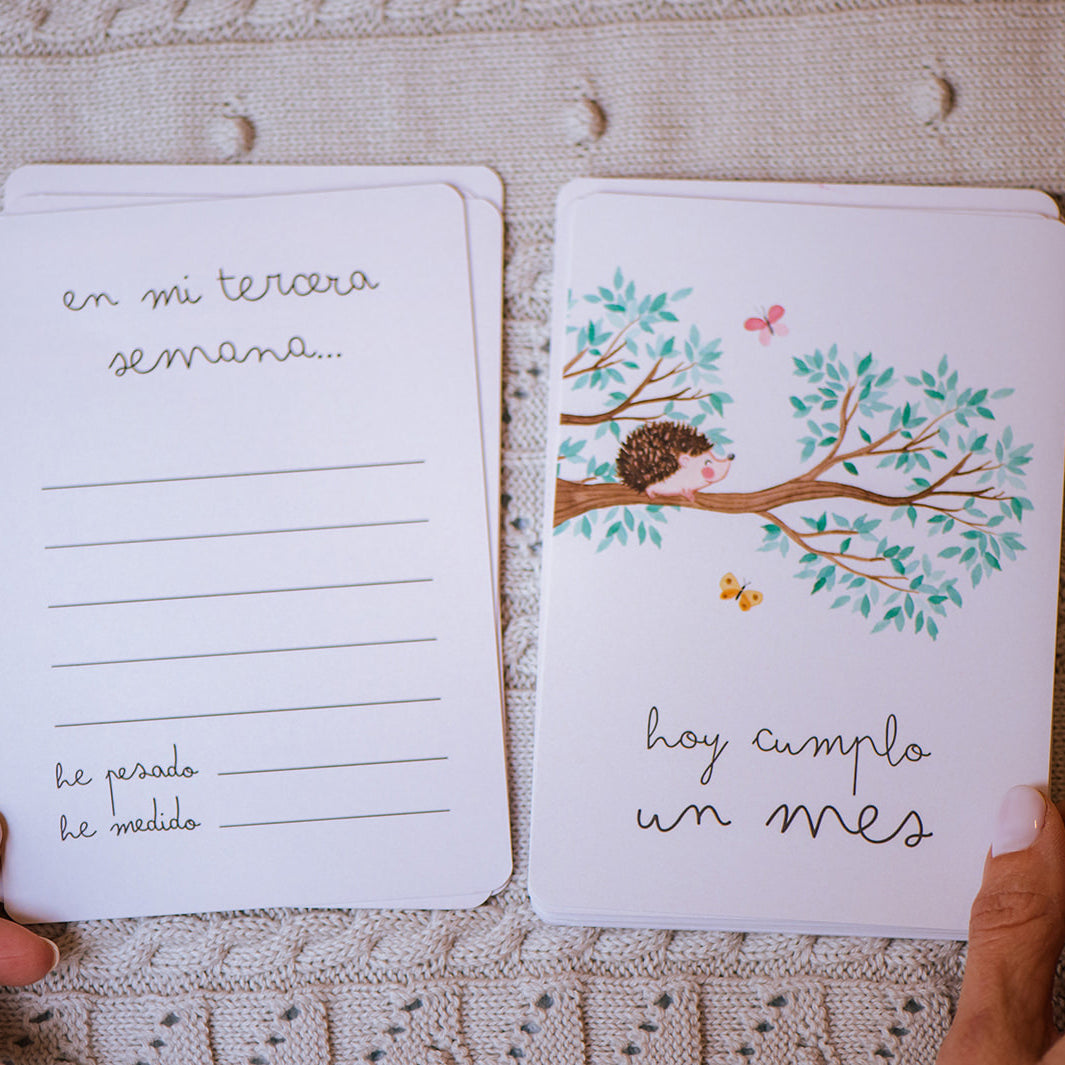 en mi tercera
semana...
he pesado
he medido
hoy cumplo
un mes